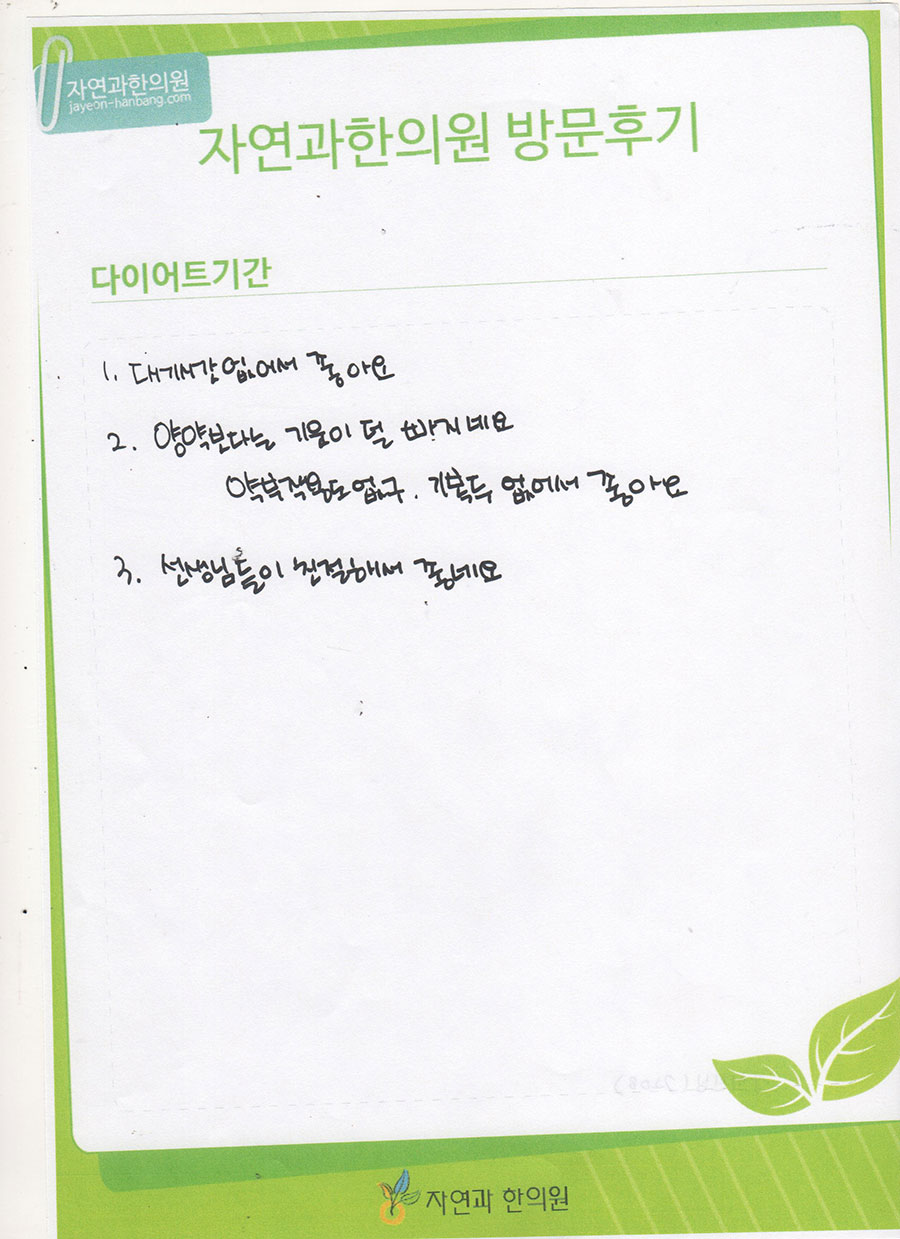 자연과한의원
jayeon-hanbang.com
자연과한의원 방문후기
다이어트기간
1. 대기시간 없어서 좋아요
2. 양약보다는 기운이 덜 빠지네요
약부작용도 없구. 기복두 없어서 좋아요
3. 선생님들이 친절해서 좋네요
자연과 한의원